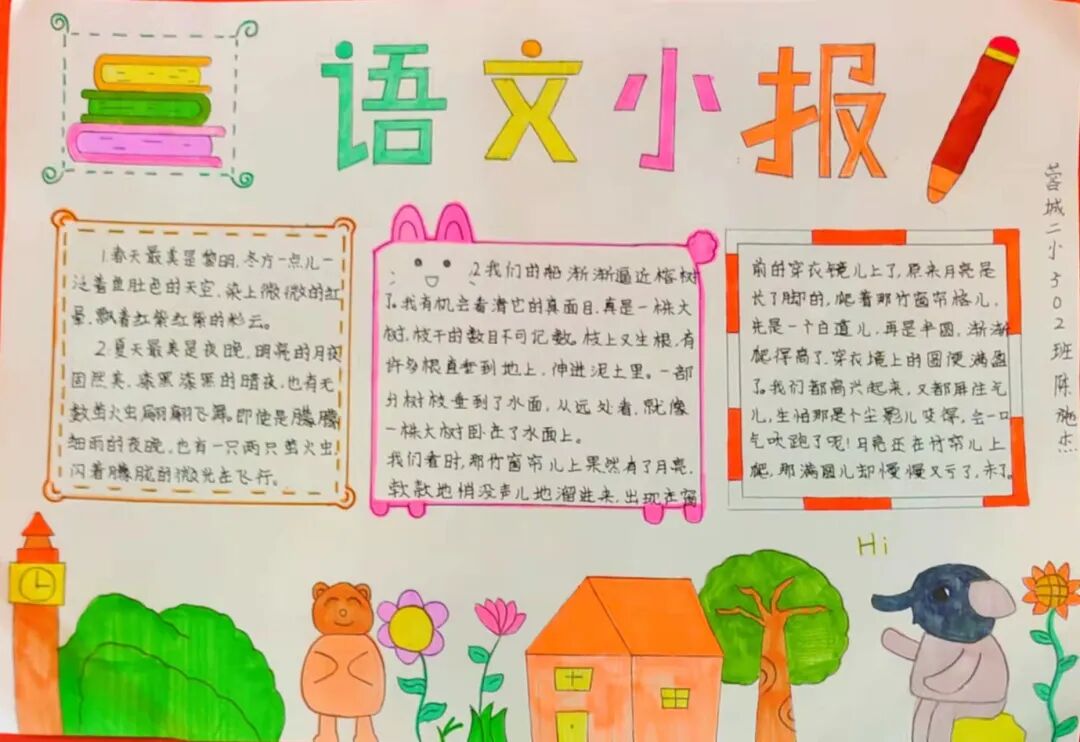 语文小报
蓉城二小302班陈施杰
1.春天最美是黎明,冬方一点儿一
泛着鱼肚色的天空,染上微微的红
晕,飘着红紫红紫的彩云。
2.夏天最美是夜晚,明亮的月夜
固然美,漆黑漆黑的暗夜,也有无
数萤火虫翩翩飞舞。即使是朦朦
细雨的夜晚,也有一只两只萤火虫,
闪着朦胧的微光在飞行。
2我们的船渐渐逼近榕树
了。我有机会看清它的真面目,真是一株大
树,枝干的数目不可记数。枝上又生根,有
许多根直垂到地上,伸进泥土里。一部
分树枝垂到了水面,从远处看,就像
一株大树卧在了水面上。
我们看时,那竹窗帘儿上果然有了月亮,
款款地悄没声儿地溜进来,出现在窗
前的穿衣镜儿上了,原来月亮是
长了脚的,爬着那竹窗帘格儿,
先是一个白道儿,再是半圆,渐渐
爬得高了,穿衣境上的圆便满盈
了。我们都高兴起来,又都屏住气
儿,生怕那是个尘影儿变得,会一口
气吹跑了呢!月亮还在竹帘儿上
爬,那满圆儿却慢慢又亏了,末了。
Hi